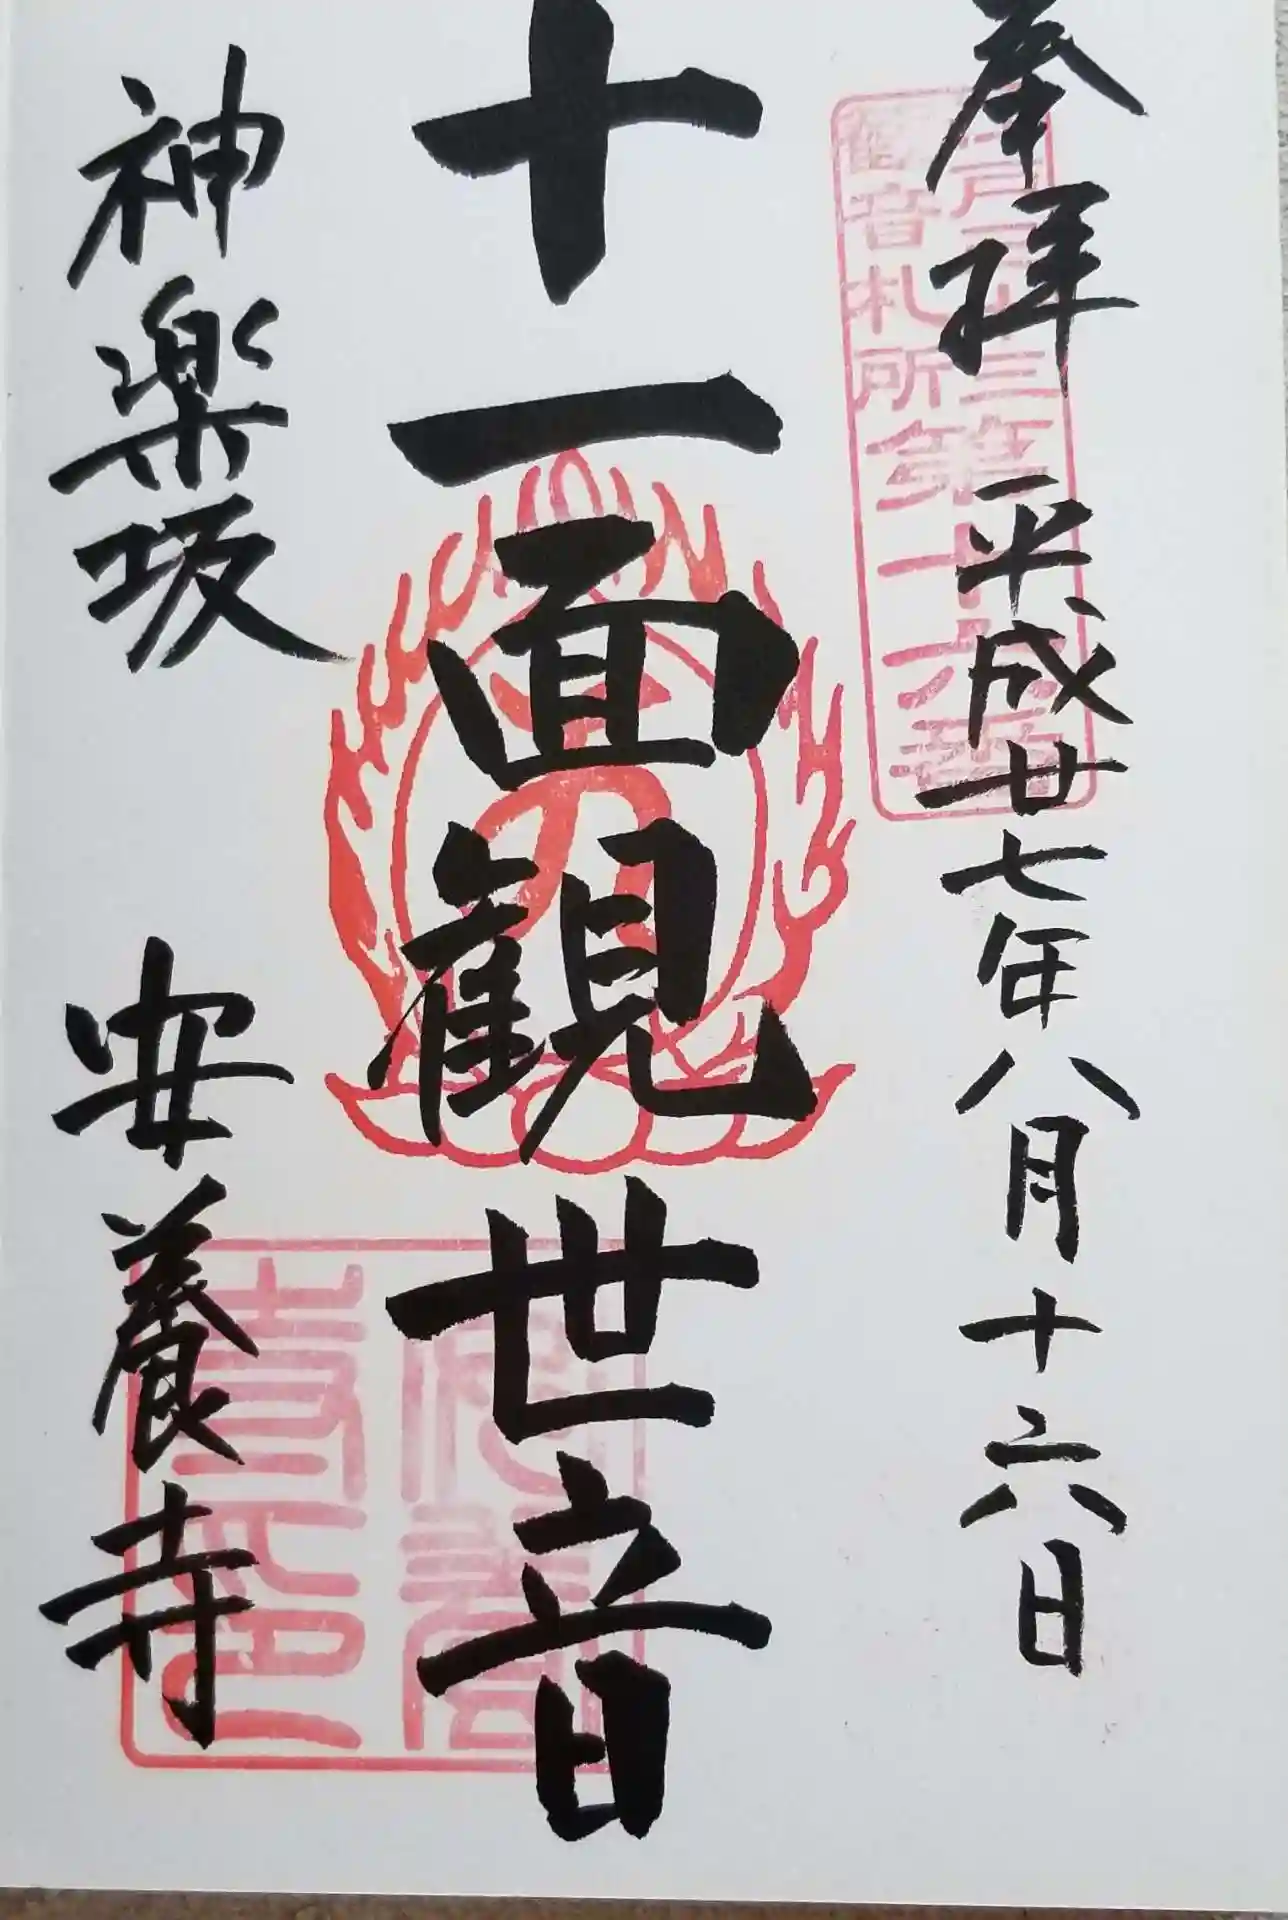 奉拝 平成廿七年八月十六日
江戸三十三
観音札所
第十六番
十一面観世音
神楽坂 安養寺
安養
寺印